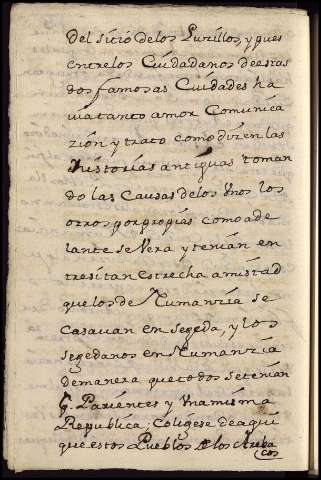 del sitio delos Lutillos, y pues
entrelos Cuidadanos deestas
dos famosas Cuidades ha
viatanto amor Comunica
zión y trato como dizen las
historias antiguas toman
do las Causas delos Unos los
otros porpropias como ade
lante se Vera y tenian en
tresi tan estrecha amistad
que los de Numanzia se
Casavan en segeda, y los
segedanos en Numanzia
demanera que todos se tenian
p. Parientes y Una misma
Republica; Coligese de aqui
que estos Pueblos de los Areba
cos